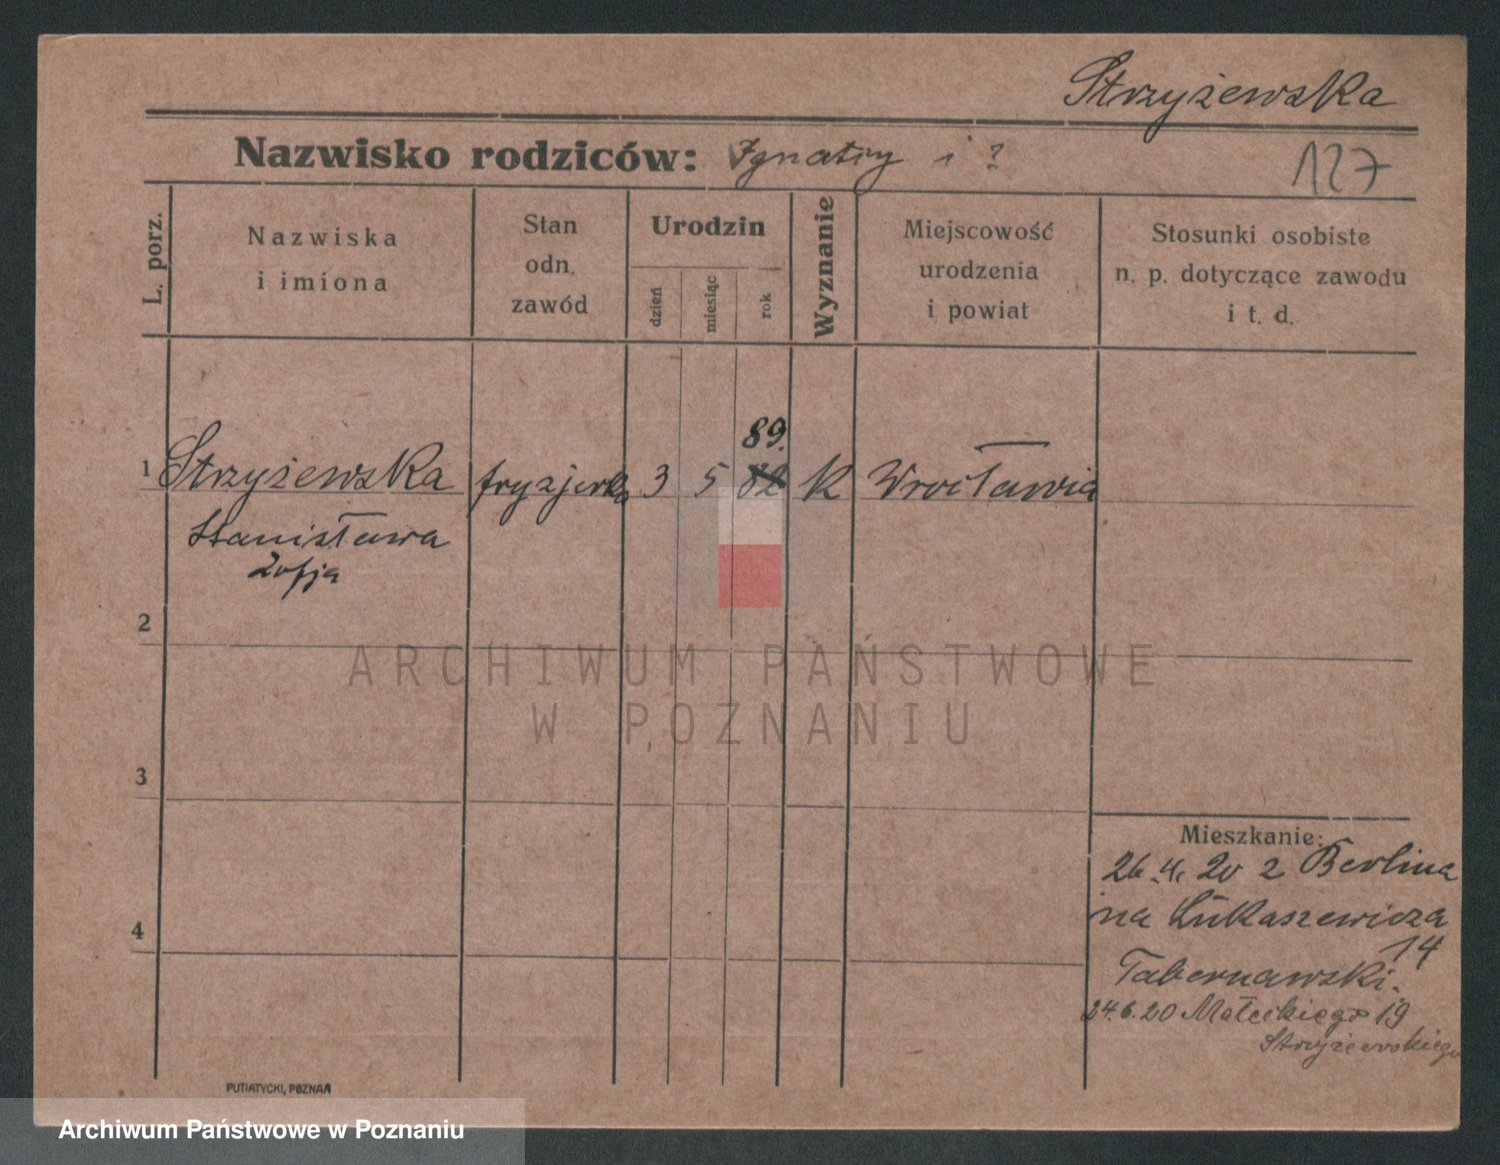 Strzyżewska
Nazwisko rodziców: Ignatzy i ?
127
L. porz.
Nazwiska
i imiona
Stan
odn.
zawód
Urodzin
dzień
miesiąc
rok
Wyznanie
Miejscowość
urodzenia
i powiat
Stosunki osobiste
n. p. dotyczące zawodu
i t. d.
89.
1 Strzyżewska fryzjerka 3 5 82 k Wrocławia
Stanisława
Zofja
2
ARCHIWUM PAŃSTWOWE
W POZNANIU
3
Mieszkanie:
26.4.20 z Berlina
na Łukaszewicza
14
Tabernawski.
24.6.20 Małeckiego 19
Strzyżewskiego
4
PUTIATYCKI, POZNAŃ
Archiwum Państwowe w Poznaniu